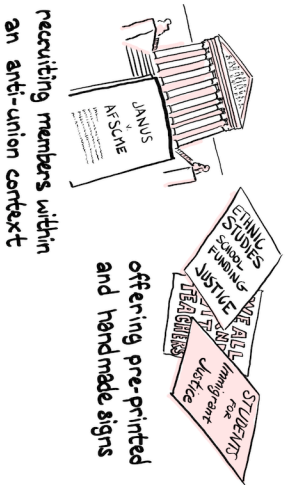 JANUS
v.
AFSCME
recruiting members within
an anti-union context
ETHNIC
STUDIES
SCHOOL
FUNDING
JUSTICE
ALL
TEACHERS
STUDENTS
FOR
Immigrant
Justice
offering pre-printed
and handmade signs